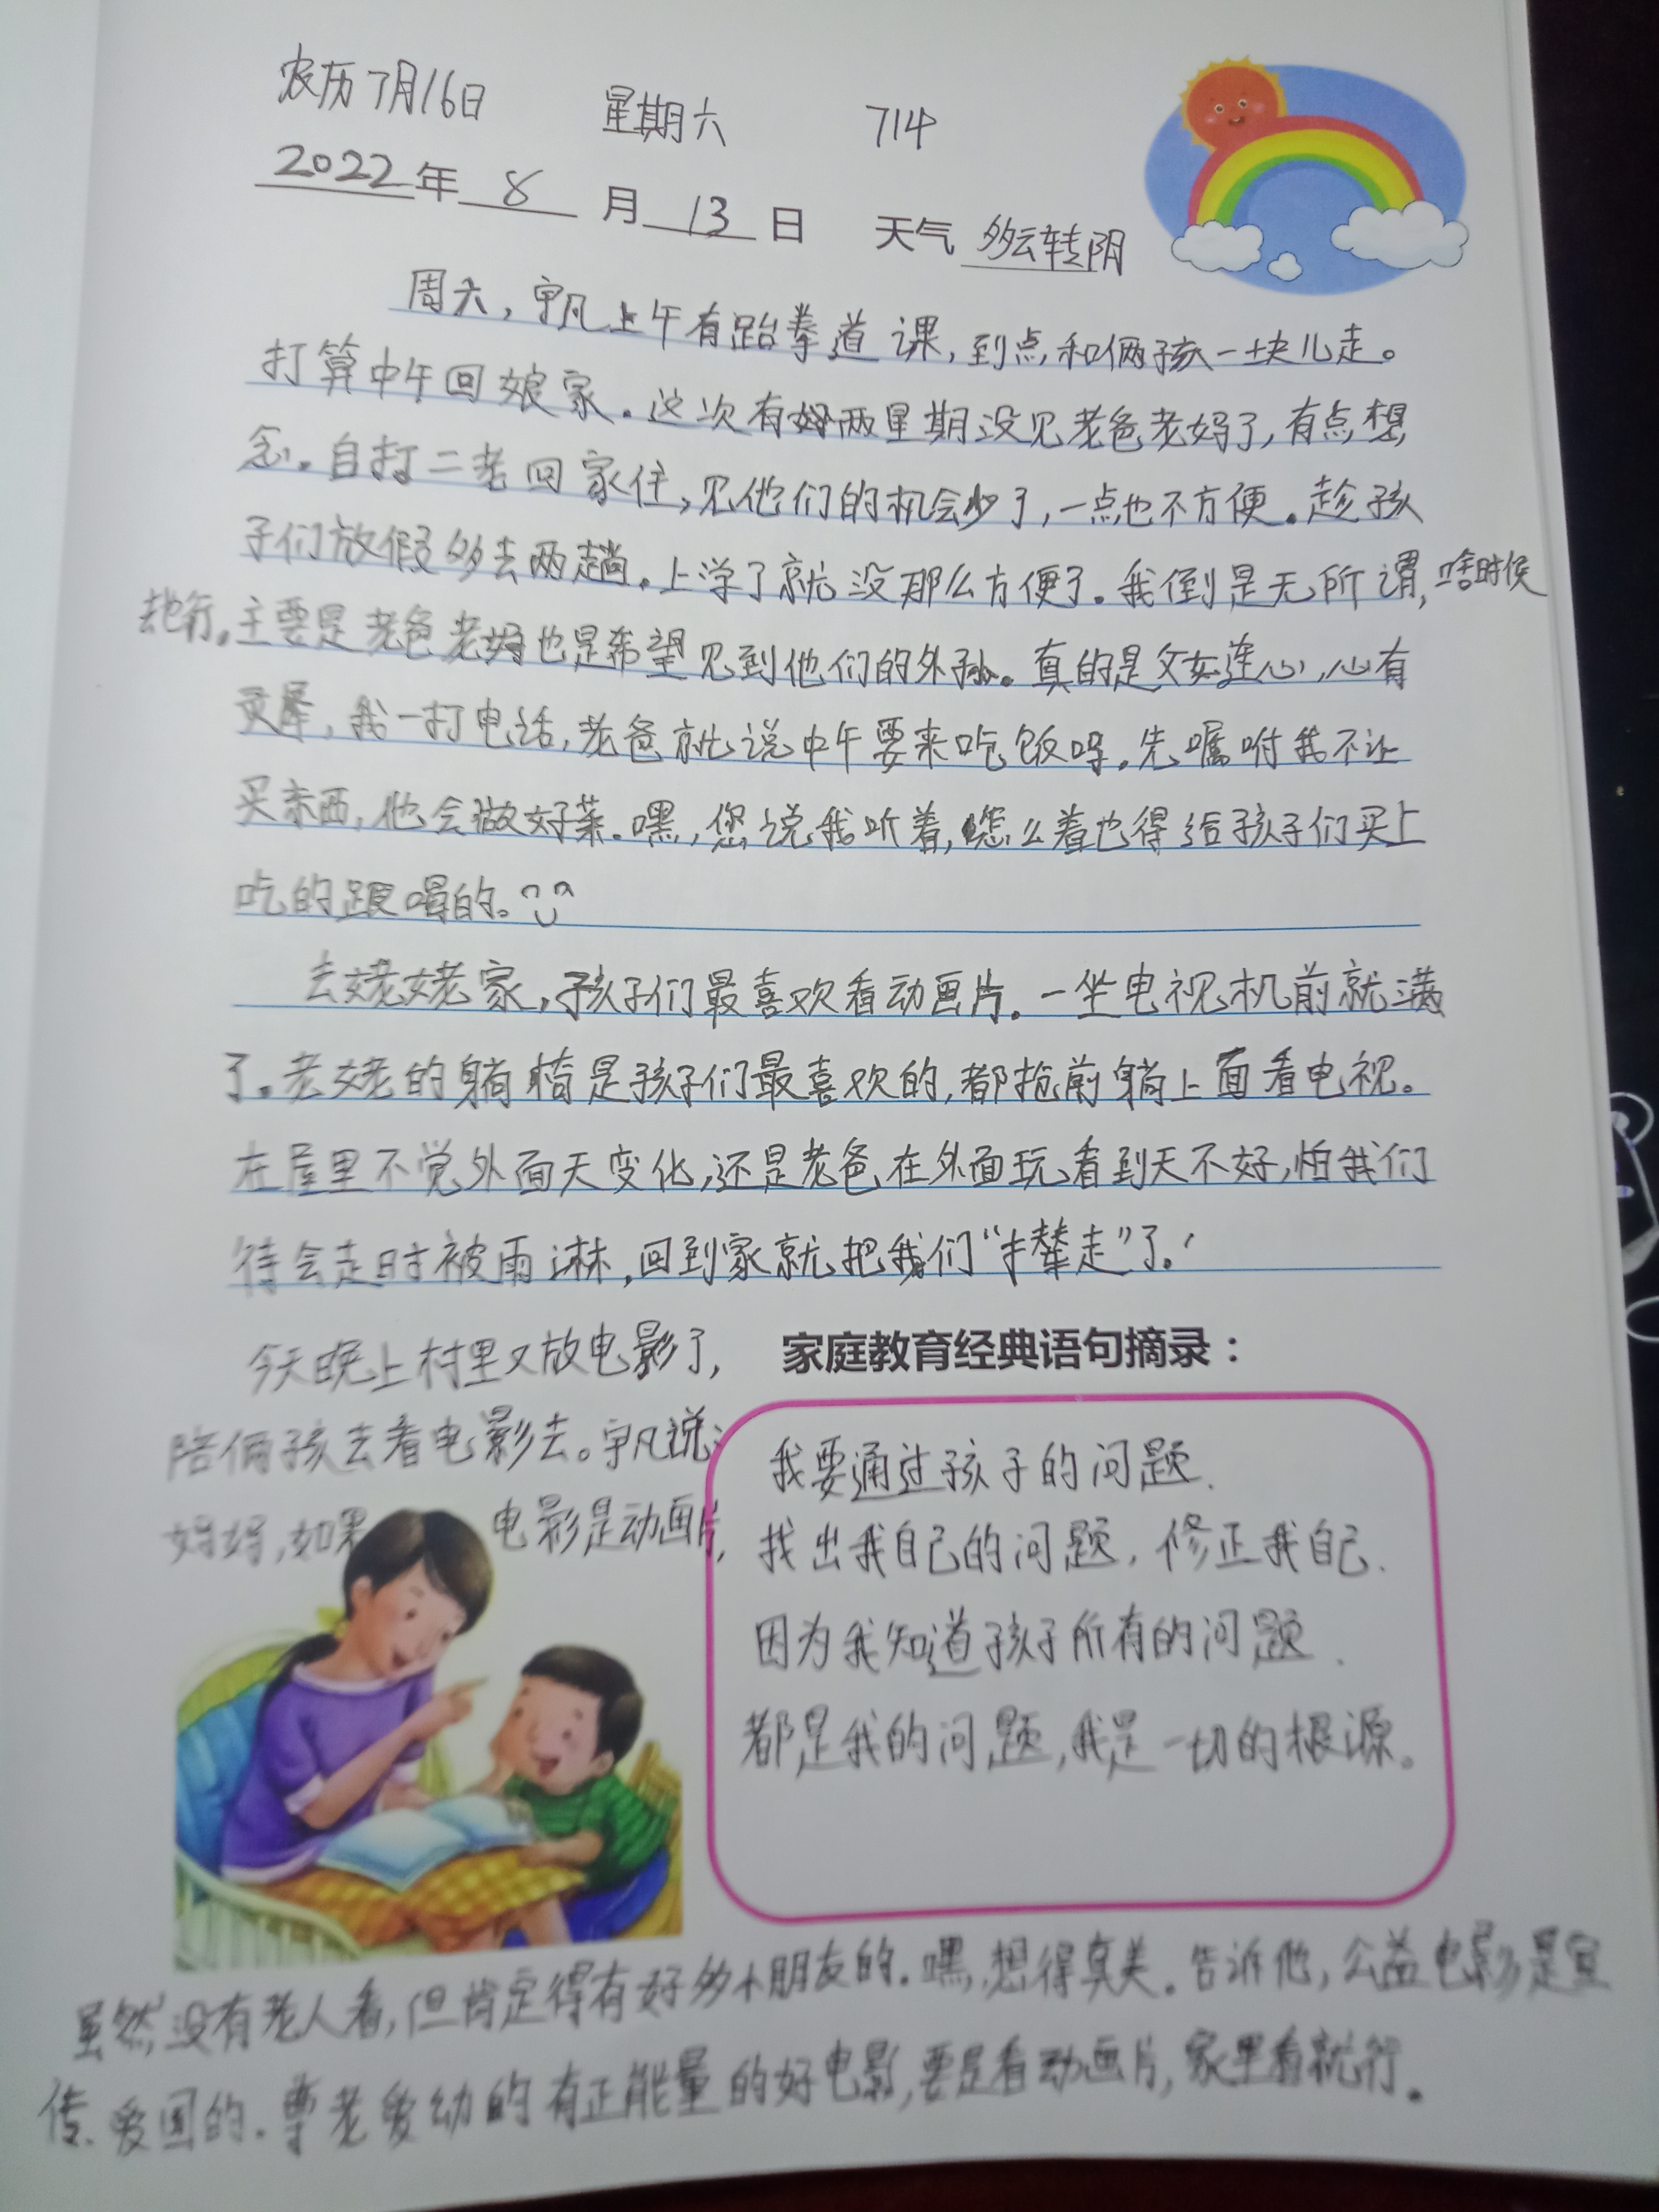 农历7月16日 星期六 714
2022年 8 月 13 日 天气 多云转阴
周六，宇凡上午有跆拳道课，到点和俩孩一块儿走。
打算中午回娘家。这次有好两星期没见老爸老妈了，有点想
念。自打二老回家住，见他们的机会少了，一点也不方便。趁孩
子们放假多去两趟。上学了就没那么方便了。我倒是无所谓，啥时候
去也行。主要是老爸老妈也是希望见到他们的外孙。真的是父女连心，心有
灵犀，我一打电话，老爸就说中午要来吃饭吗。先嘱咐我不让
买东西，他会做好菜。嘿，您说我听着，怎么着也得给孩子们买上
吃的跟喝的。
去姥姥家，孩子们最喜欢看动画片。一坐电视机前就满
了。老姥的躺椅是孩子们最喜欢的，都抢前躺上面看电视。
在屋里不觉外面天变化，还是老爸在外面玩看到天不好，怕我们
待会走时被雨淋，回到家就把我们“撵走”了。
今天晚上村里又放电影了，
陪俩孩去看电影去。宇凡说：
妈妈，如果电影是动画片，
家庭教育经典语句摘录：
我要通过孩子的问题.
找出我自己的问题，修正我自己.
因为我知道孩子所有的问题.
都是我的问题，我是一切的根源。
虽然没有老人看，但肯定得有好多小朋友的。嘿，想得真美。告诉他，公益电影是宣
传、爱国的.尊老爱幼的有正能量的好电影，要是看动画片，家里看就行。